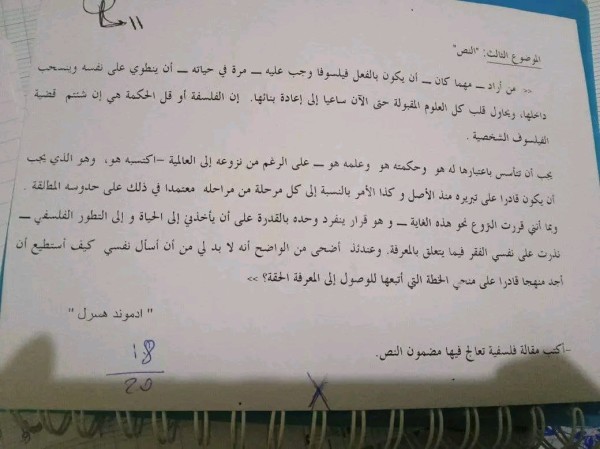 11
الموضوع الثالث: "النص"
>> من أراد ــ مهما كان ــ أن يكون بالفعل فيلسوفا وجب عليه ــ مرة في حياته ــ أن ينطوي على نفسه وينسحب
داخلها، ويحاول قلب كل العلوم المقبولة حتى الآن ساعيا إلى إعادة بنائها. إن الفلسفة أو قل الحكمة هي إن شئتم قضية
الفيلسوف الشخصية .
يجب أن تتأسس باعتبارها له هو وحكمته هو وعلمه هو ــ على الرغم من نزوعه إلى العالمية –اكتسبه هو، وهو الذي يجب
أن يكون قادرا على تبريره منذ الأصل و كذا الأمر بالنسبة إلى كل مرحلة من مراحله معتمدا في ذلك على حدوسه المطالقة .
وبما أنني قررت النزوع نحو هذه الغاية ــ و هو قرار ينفرد وحده بالقدرة على أن يأخذني إلى الحياة و إلى التطور الفلسفي ــ
نذرت على نفسي الفقر فيما يتعلق بالمعرفة. وعندئذ أضحى من الواضح أنه لا بد لي من أن أسأل نفسي كيف أستطيع أن
أجد منهجا قادرا على منحي الخطة التي أتبعها للوصول إلى المعرفة الحقة؟ >>
" ادموند هسرل "
–أكتب مقالة فلسفية تعالج فيها مضمون النص.
18
20